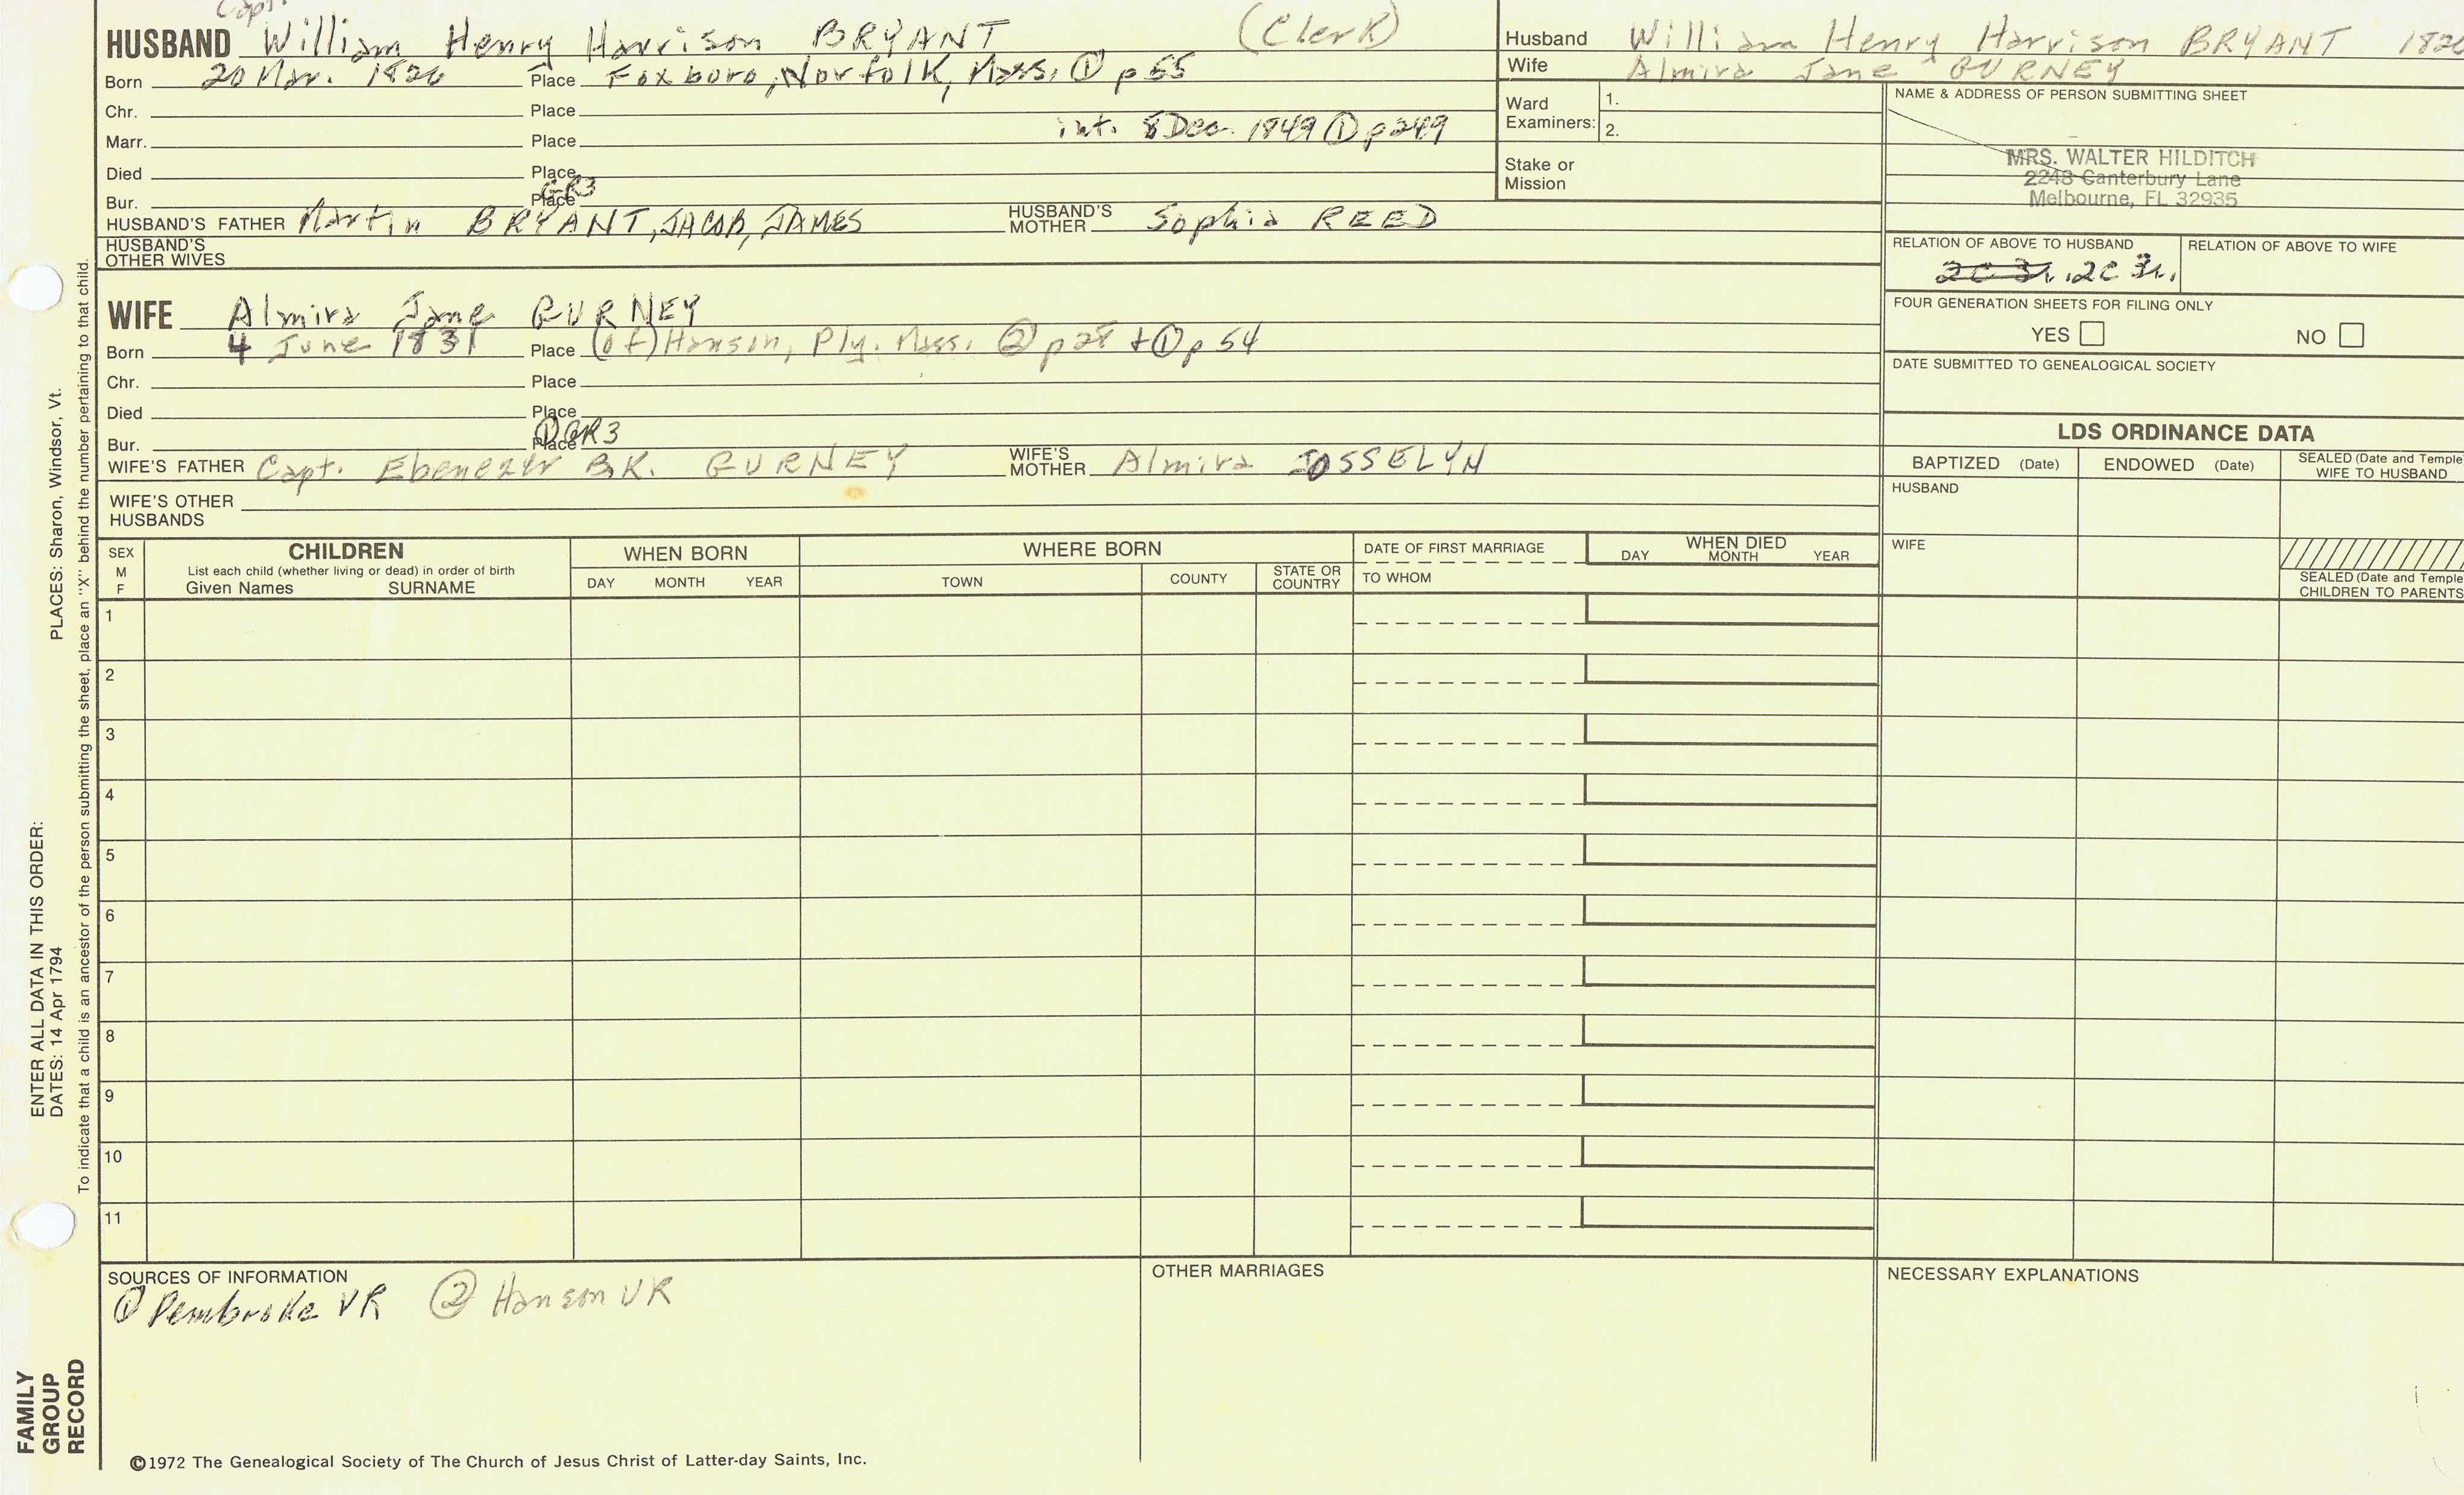 Capt.
HUSBAND William Henry Harrison BRYANT (Clerk)
Born 20 Mar. 1826 Place Foxboro, Norfolk, Mass. ① p 55
Chr. Place
Marr. Place int. 8 Dec. 1849 ① p 249
Died Place
Bur. Place GR3
HUSBAND'S FATHER Martin BRYANT, JACOB, JAMES HUSBAND'S MOTHER Sophia REED
HUSBAND'S OTHER WIVES
Husband William Henry Harrison BRYANT 1826
Wife Almira Jane GURNEY
Ward Examiners: 1.
2.
Stake or Mission
NAME & ADDRESS OF PERSON SUBMITTING SHEET
MRS. WALTER HILDITCH
2248 Canterbury Lane
Melbourne, FL 32935
RELATION OF ABOVE TO HUSBAND RELATION OF ABOVE TO WIFE
2c 3r. 2c 3r.
FOUR GENERATION SHEETS FOR FILING ONLY
YES NO
DATE SUBMITTED TO GENEALOGICAL SOCIETY
WIFE Almira Jane GURNEY
Born 4 June 1831 Place (of) Hanson, Ply. Mass. ② p 28 + ① p 54
Chr. Place
Died Place
Bur. Place ① GR3
WIFE'S FATHER Capt. Ebenezer B.K. GURNEY WIFE'S MOTHER Almira JOSSELYN
WIFE'S OTHER HUSBANDS
LDS ORDINANCE DATA
BAPTIZED (Date) ENDOWED (Date) SEALED (Date and Temple
WIFE TO HUSBAND
HUSBAND
WIFE
SEALED (Date and Temple
CHILDREN TO PARENTS
SEX
M
F
CHILDREN
List each child (whether living or dead) in order of birth
Given Names SURNAME
WHEN BORN
DAY MONTH YEAR
WHERE BORN
TOWN COUNTY STATE OR COUNTRY
DATE OF FIRST MARRIAGE
TO WHOM
WHEN DIED
DAY MONTH YEAR
1
2
3
4
5
6
7
8
9
10
11
SOURCES OF INFORMATION
① Pembroke VR ② Hanson VR
OTHER MARRIAGES
NECESSARY EXPLANATIONS
©1972 The Genealogical Society of The Church of Jesus Christ of Latter-day Saints, Inc.
FAMILY
GROUP
RECORD
ENTER ALL DATA IN THIS ORDER:
DATES: 14 Apr 1794 PLACES: Sharon, Windsor, Vt.
To indicate that a child is an ancestor of the person submitting the sheet, place an "X" behind the number pertaining to that child.